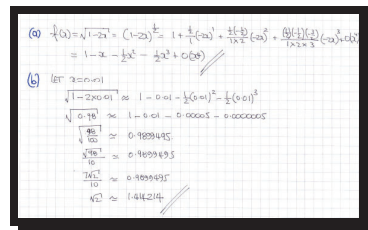 (a) f(x) = √(1-2x) = (1-2x)^½ = 1 + ½/1 (-2x)¹ + ½(-½)/(1×2) (-2x)² + (½)(-½)(-3/2)/(1×2×3) (-2x)³ + O(x⁴)
= 1 - x - ½x² - ½x³ + O(x⁴)
(b) LET x=0.01
√(1-2×0.01) ≈ 1 - 0.01 - ½(0.01)² - ½(0.01)³
√0.98 ≈ 1 - 0.01 - 0.00005 - 0.0000005
√(98/100) ≈ 0.9899495.
√98/10 ≈ 0.9899495
7√2/10 ≈ 0.9899495
√2 ≈ 1.414214